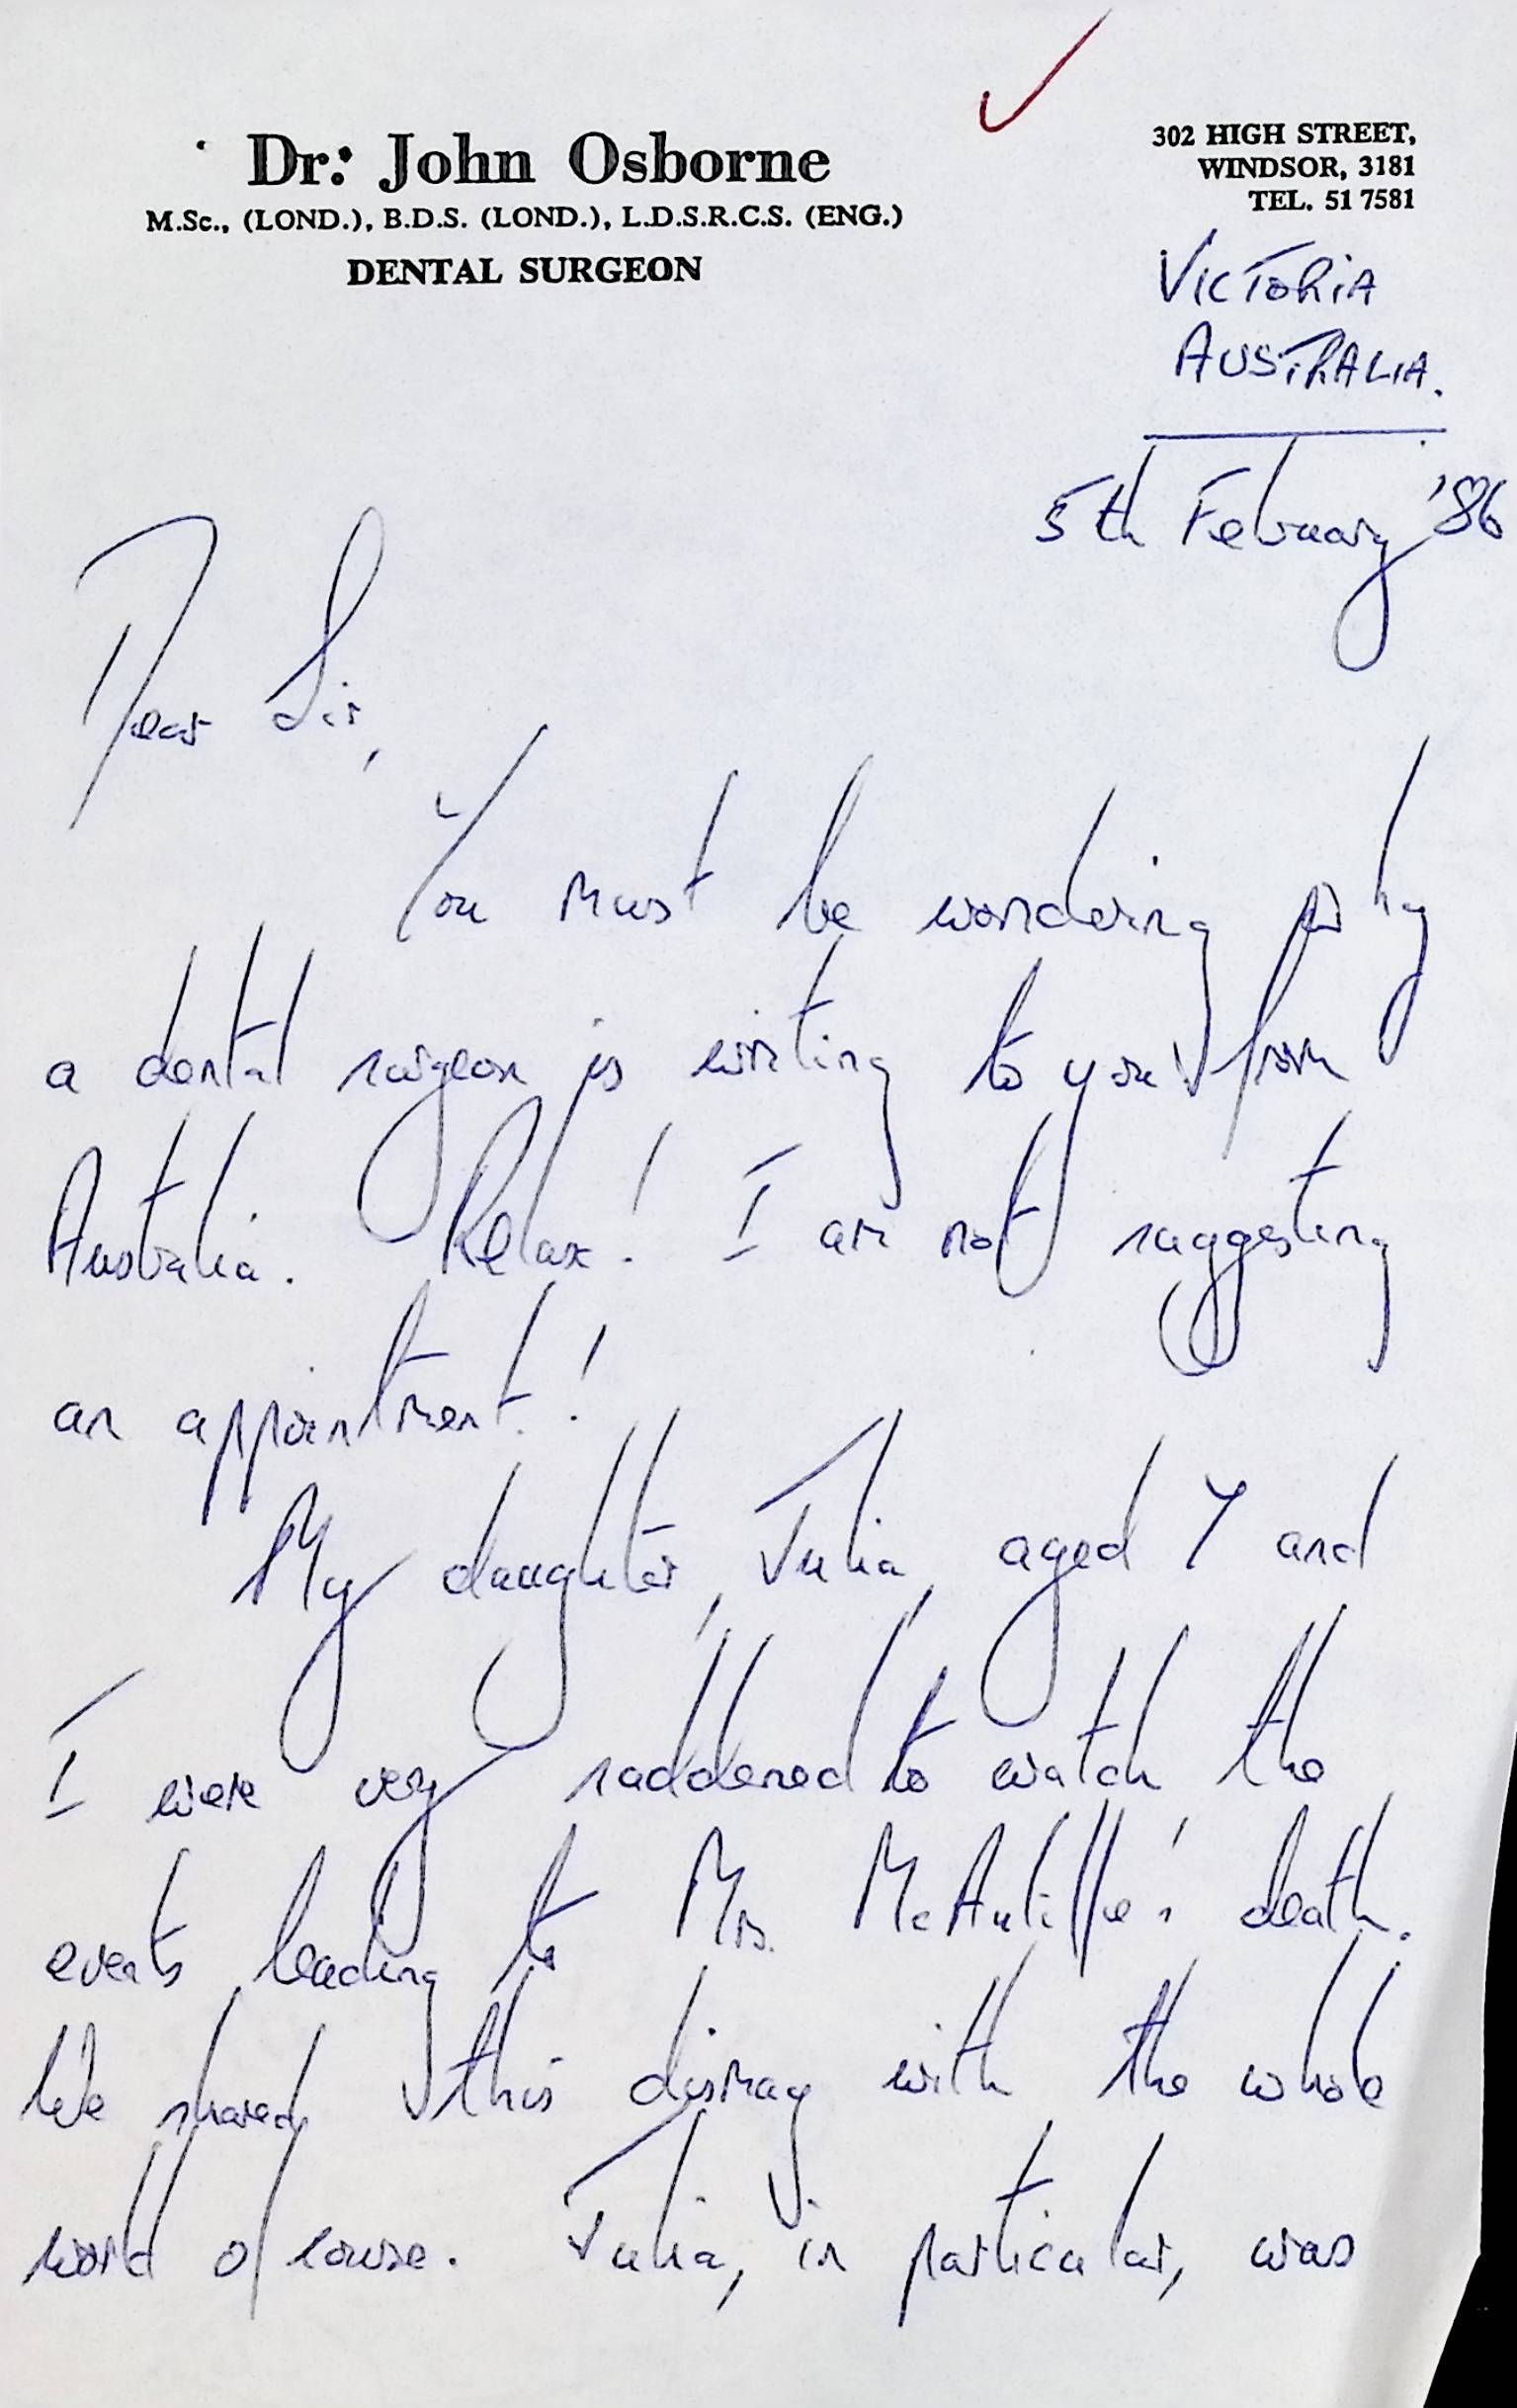 Dr. John Osborne
M.Sc., (LOND.), B.D.S. (LOND.), L.D.S.R.C.S. (ENG.)
DENTAL SURGEON
302 HIGH STREET,
WINDSOR, 3181
TEL. 51 7581
VICTORIA
AUSTRALIA.
5th February '86
Dear Sir,
You must be wondering why
a dental surgeon is writing to you from
Australia. Relax! I am not suggesting
an appointment!
My daughter, Julia, aged 7 and
I were very saddened to watch the
events leading to Mrs. McAuliffe's death.
We shared this dismay with the whole
world of course. Julia, in particular, was